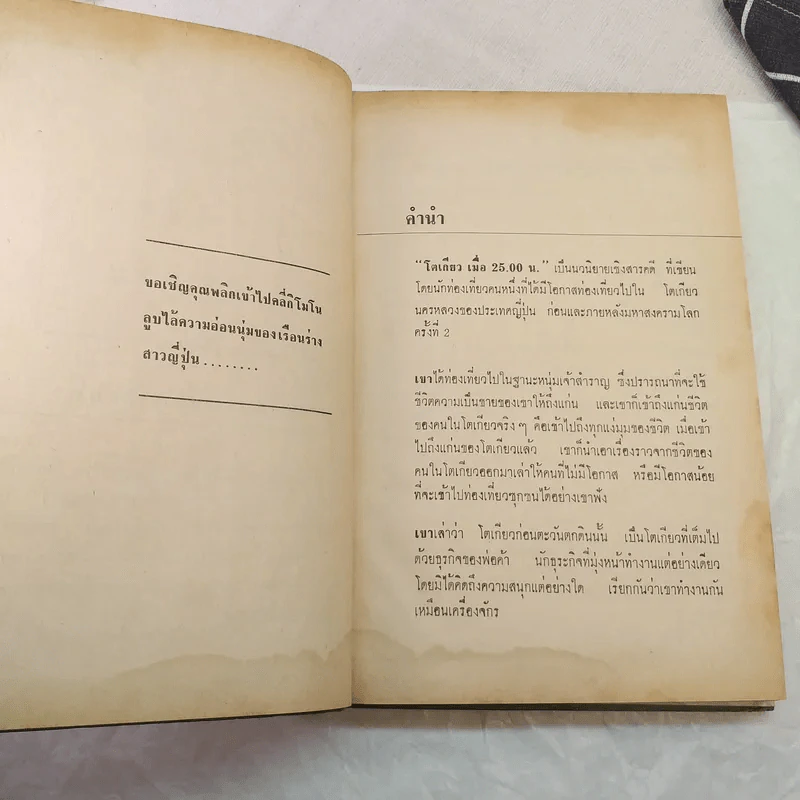 ขอเชิญคุณพลิกเข้าไปคลี่กิโมโน
ลูบไล้ความอ่อนนุ่มของเรือนร่าง
สาวญี่ปุ่น ........
คำนำ
"โตเกียว เมื่อ 25.00 น." เป็นนวนิยายเชิงสารคดี ที่เขียน
โดยนักท่องเที่ยวคนหนึ่งที่ได้มีโอกาสท่องเที่ยวไปใน โตเกียว
นครหลวงของประเทศญี่ปุ่น ก่อนและภายหลังมหาสงครามโลก
ครั้งที่ 2
เขาได้ท่องเที่ยวไปในฐานะหนุ่มเจ้าสำราญ ซึ่งปรารถนาที่จะใช้
ชีวิตความเป็นชายของเขาให้ถึงแก่น และเขาก็เข้าถึงแก่นชีวิต
ของคนในโตเกียวจริง ๆ คือเข้าไปถึงทุกแง่มุมของชีวิต เมื่อเข้า
ไปถึงแก่นของโตเกียวแล้ว เขาก็นำเอาเรื่องราวจากชีวิตของ
คนในโตเกียวออกมาเล่าให้คนที่ไม่มีโอกาส หรือมีโอกาสน้อย
ที่จะเข้าไปท่องเที่ยวซุกซนได้อย่างเขาฟัง
เขาเล่าว่า โตเกียวก่อนตะวันตกดินนั้น เป็นโตเกียวที่เต็มไป
ด้วยธุรกิจของพ่อค้า นักธุระกิจที่มุ่งหน้าทำงานแต่อย่างเดียว
โดยมิได้คิดถึงความสนุกแต่อย่างใด เรียกกันว่าเขาทำงานกัน
เหมือนเครื่องจักร